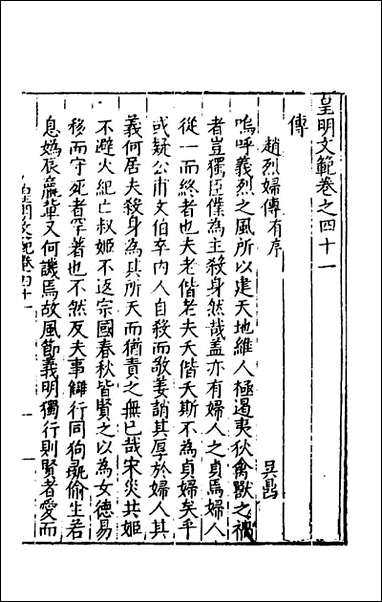 皇明文範卷之四十一
傳
趙烈婦傳有序
吳㬎
嗚呼義烈之風所以建天地維人極遏夷狄禽獸之禍
者豈獨臣僕為主殺身然哉盖亦有婦人之貞焉婦人
從一而終者也夫老偕老夫夭偕夭斯不為貞婦矣乎
或疑公甫文伯卒内人自殺而敬姜誚其厚於婦人其
義何居夫殺身為其所天而猶責之無已哉宋災共姬
不避火紀亡叔姬不返宗國春秋皆賢之以為女德易
移而守死者罕著也不然反夫事讎行同狗彘偷生若
息媯辰嬴輩又何譏焉故風節義明獨行則賢者愛而
皇明文範卷四十一
一